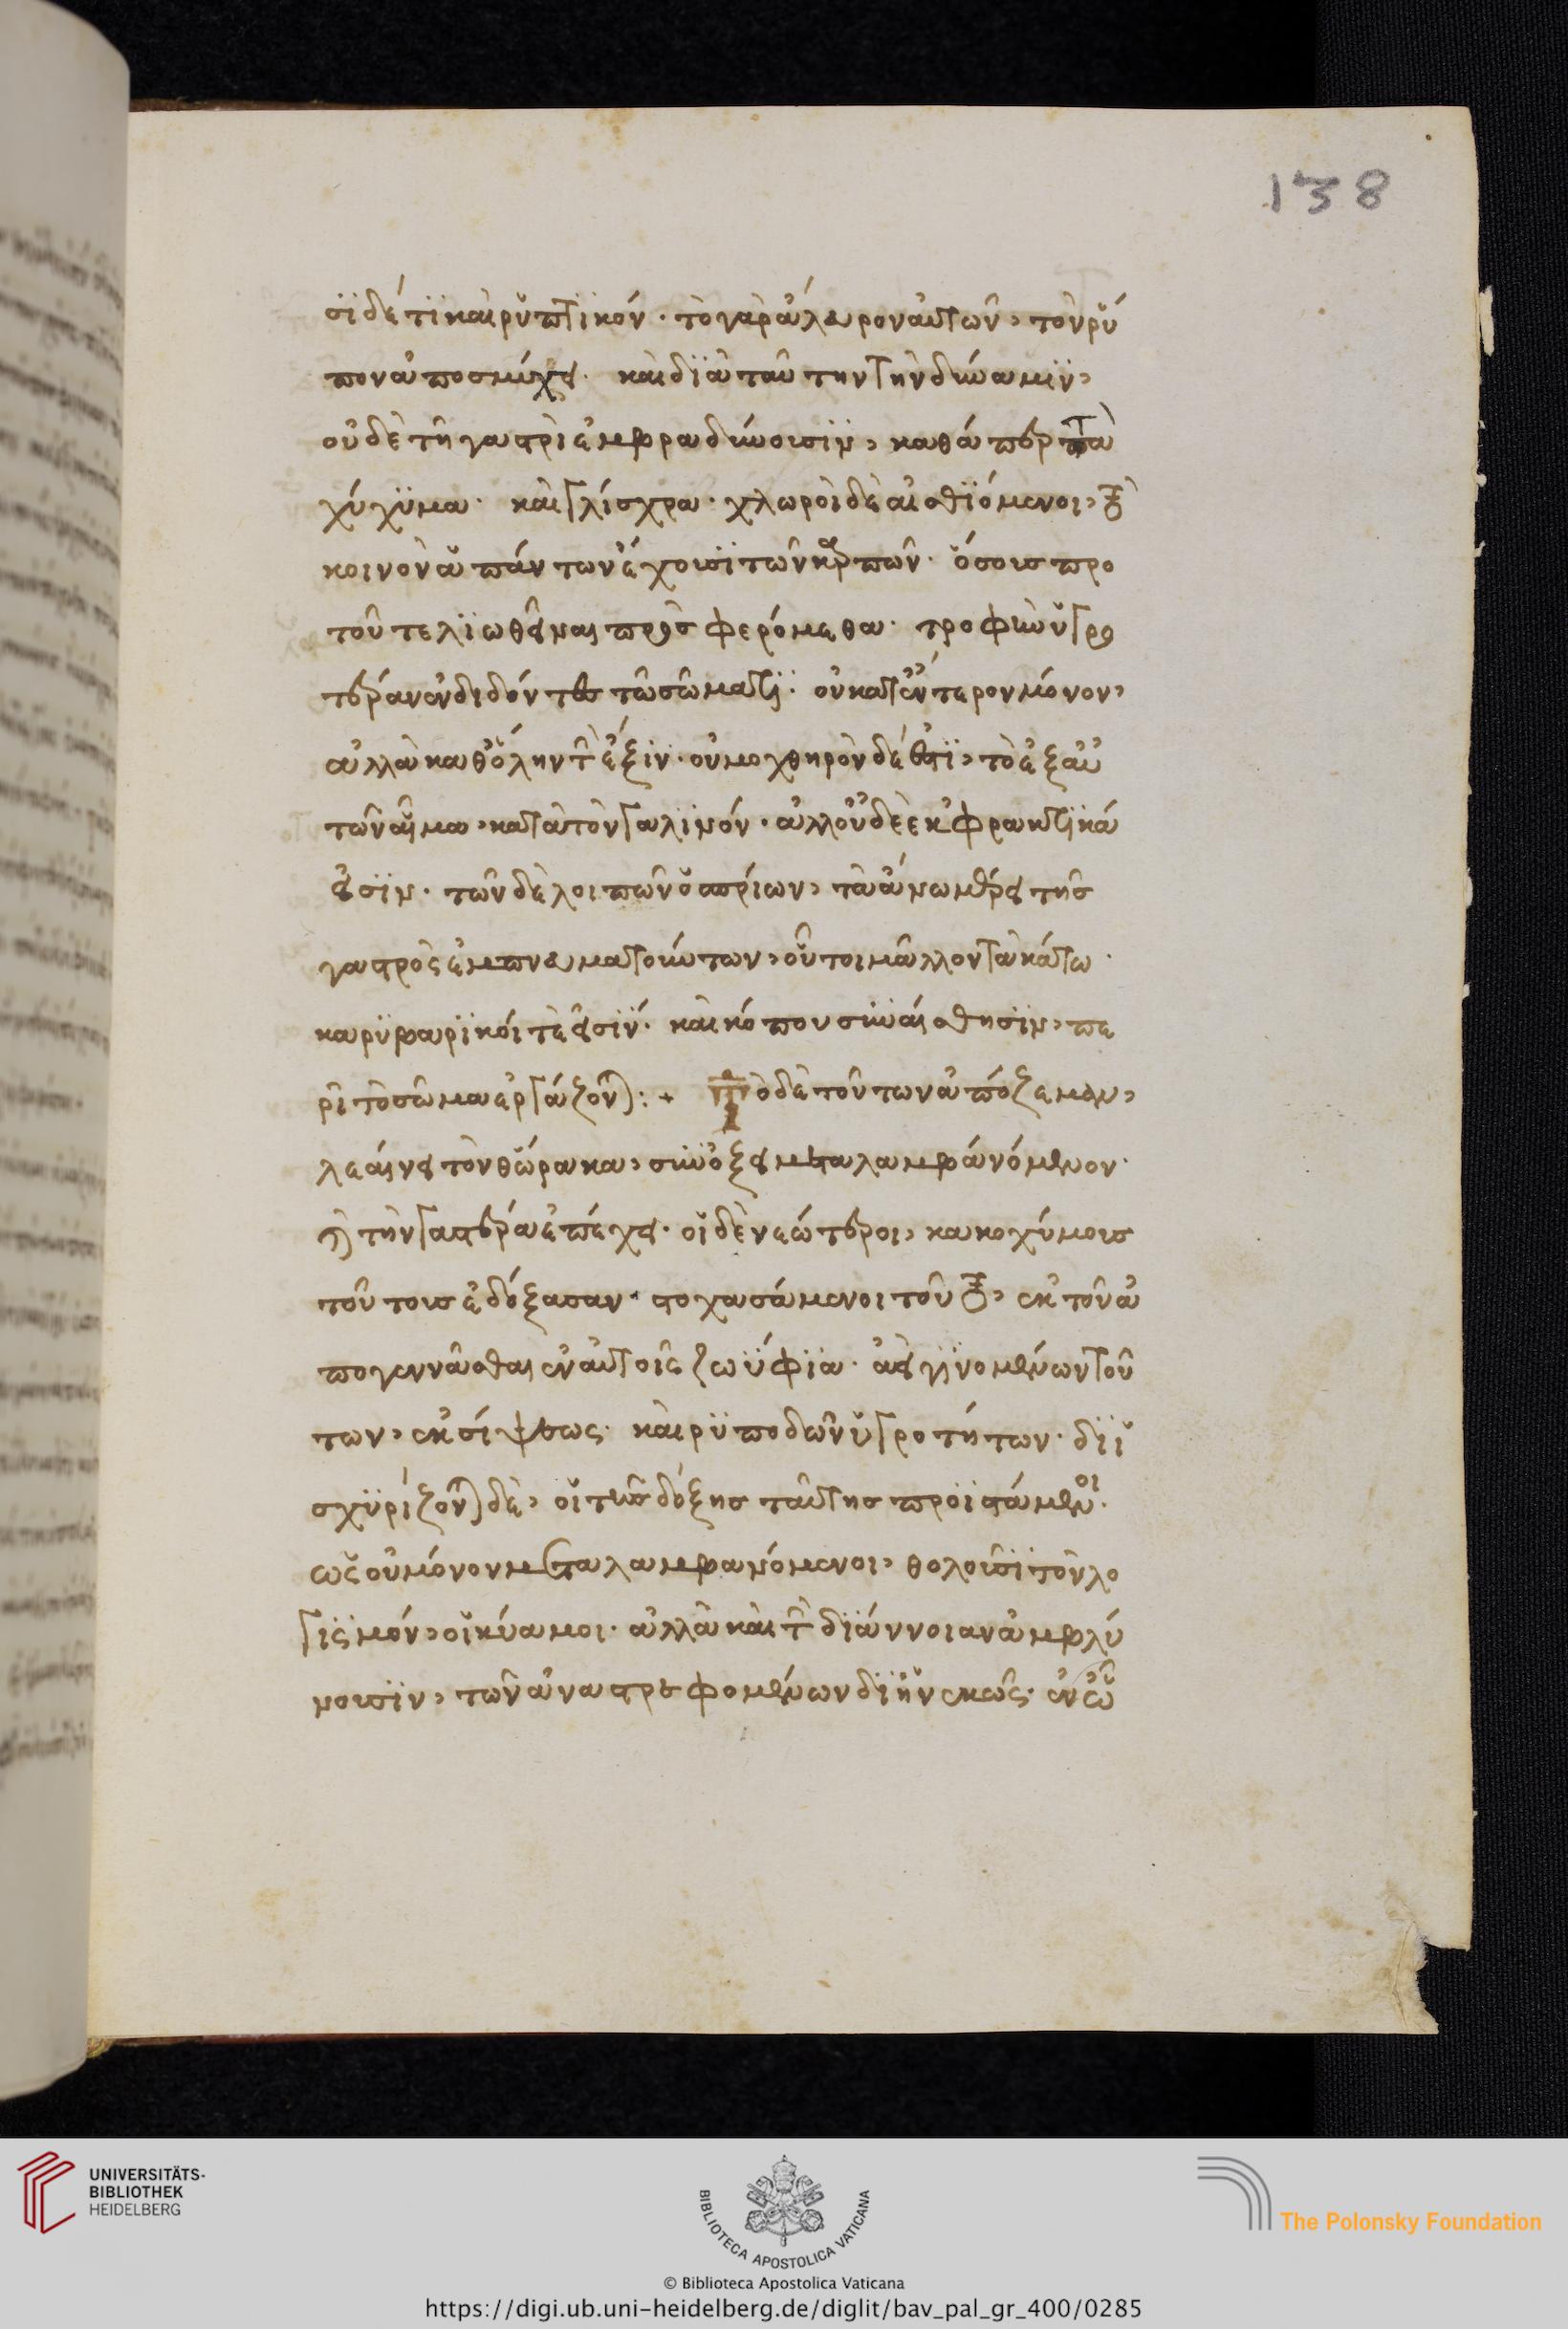 138
σϊ δέ τϊ καὶ ρϋπτϊκόν· τὸ γὰρ ἄλευρον αὐτῶν, τὸν ρύ
πον ἀποσμύχει· καὶ διὰ ταύτην τὴν δύναμϊν,
οὐδὲ τῆ γαστρὶ ἐμβραδύνουσιν, καθάπερ τὰ πα
χύχϋμα· καὶ γλίσχρα· χλωροὶ δὲ αἰσθϊόμενοι, τὸ
κοινὸν ἁπάντων ἔχουσϊ τῶν καρπῶν· ὅσοις προ
τοῦ τελϊωθῆναι προσφερόμεθα· τροφὴν ὑγρο
τέραν ἐνδιδόντες τῶ σώματϊ· οὐ κατ' ἔντερον μόνον,
ἀλλὰ καθ' ὅλην τὴν ἕξϊν· οὐ μοχθηρὸν δέ ἐστϊ, τὸ ἐξ αὐ
τῶν αἷμα, κατὰ τὸν γαλϊνόν· ἀλλ' οὐδὲ ἐκφρακτϊκά
εἰσϊν· τῶν δὲ λοιπῶν ὀσπρίων, τὰ ἄνω μέρει τῆς
γαστρὸς ἐμπνευματούντων, οὗτοι μᾶλλον τὰ κάτω·
καρϋβαρϊκοί τε εἰσϊν· καὶ κόπου συναίσθησϊν, πε
ρὶ τὸ σῶμα ἐργάζονται:+ Τὸ δὲ τούτων ἀπόζεμα,
λεαίνει τὸν θώρακα, σὺν ὄξει μεταλαμβάνόμενον·
καὶ τὴν γαστέρα ἐπέχει· οἱ δὲ νεώτεροι, κακοχύμους
τούτους ἐδόξασαν· στοχασάμενοι τοῦτο, ἐκ τοῦ ἀ
πογεννᾶσθαι ἐν αὐτοῖς ζωΰφϊα· ἀεὶ γϊνομένων τού
των, ἐκ σίψεως· καὶ ρϋποδῶν ὑγροτήτων· διϊ
σχϋρίζονται δὲ, οἱ τῆς δόξης ταύτης προϊστάμενοι·
ὡς οὐ μόνον μεταλαμβανόμενοι, θολοῦσϊ τὸν λο
γϊσμόν, οἱ κύαμοι· ἀλλὰ καὶ τὴν διάννοιαν ἀμβλύ
νουσϊν, τῶν ἀναστρεφομένων διηνεκῶς· ἐν ὧ
UNIVERSITÄTS-
BIBLIOTHEK
HEIDELBERG
BIBLIOTECA APOSTOLICA VATICANA
The Polonsky Foundation
© Biblioteca Apostolica Vaticana
https://digi.ub.uni-heidelberg.de/diglit/bav_pal_gr_400/0285